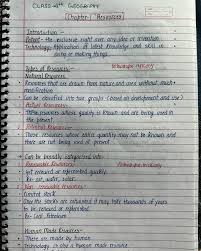 CLASS-8th GEOGRAPHY
Chapter-1 Resources
Introduction -
Patent - the exclusive right over any idea or invention
Technology - Application of latest knowledge and skill in
doing or making things.
Types of Resources -
Natural Resources
Resources that are drawn from nature and used without much
modification
Can be classified into two groups (based on development and use)
Actual Resources
Those resources whose quantity is known and are being used in
the present
Potential Resources
Those resources whose entire quantity may not be known and
there are not being used at present
Can be broadly categorised into-
Renewable Resources
Get renewed or replenished quickly
Ex- air, water, solar.
Non renewable resources
Limited stock
Once the stocks are exhausted it may take thousands of years
to be renewed or replenished
Ex- Coal, Petroleum
Human Made Resources -
These are made by human
Technology is also a human made resource